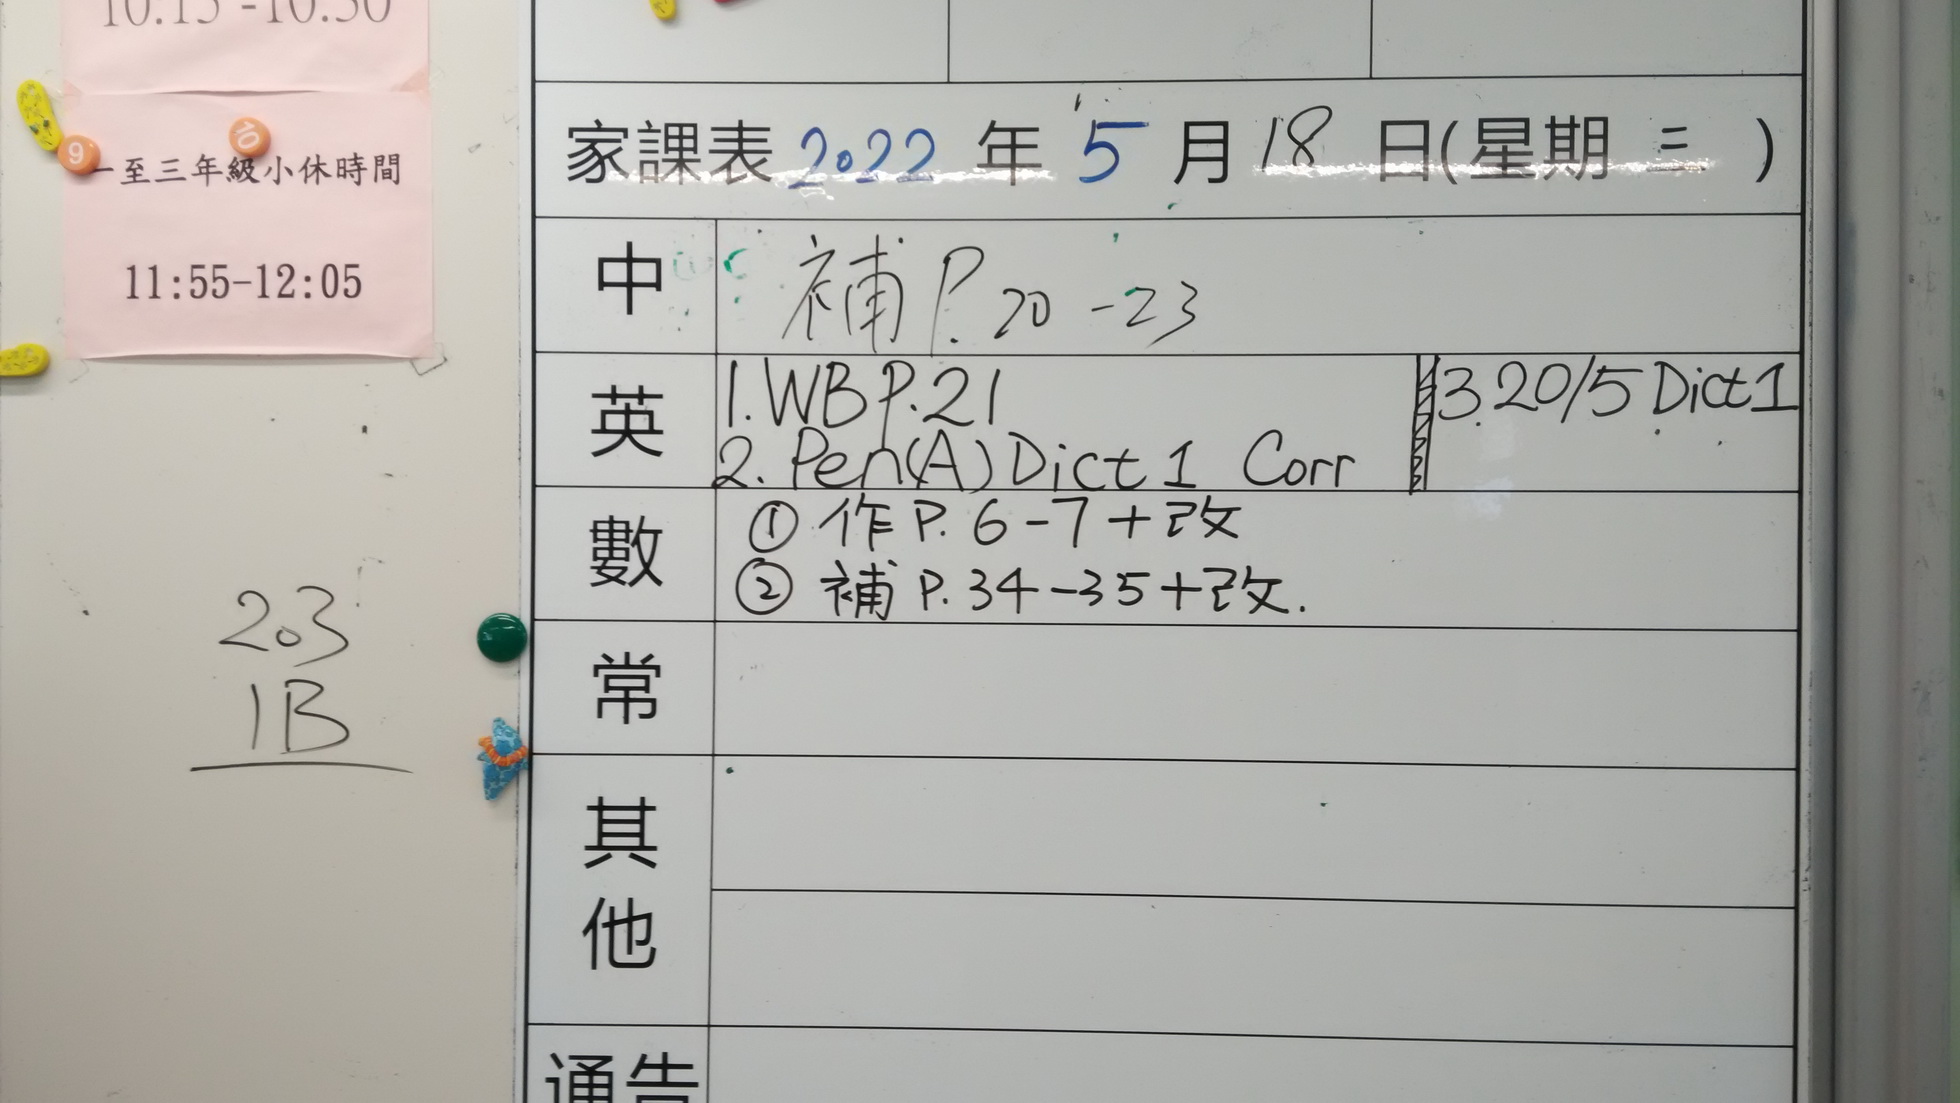 10:15-10:30
一至三年級小休時間
11:55-12:05
203
1B
家課表 2022 年 5 月 18 日(星期 三 )
中 補 P. 20-23
英
1. WB P.21
2. Pen(A) Dict 1 Corr
3. 20/5 Dict 1
數
① 作 P. 6-7+改
② 補 P. 34-35+改.
常
其他
通告
9
10